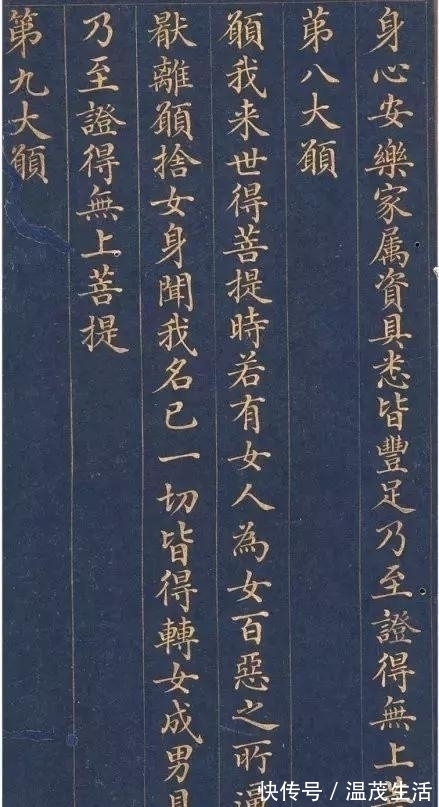 身心安樂家属資具悉皆豐足乃至證得無上
第八大願
願我来世得菩提時若有女人為女百惡之所
猒離願捨女身聞我名已一切皆得轉女成男具
乃至證得無上菩提
第九大願
快传号 / 温茂生活